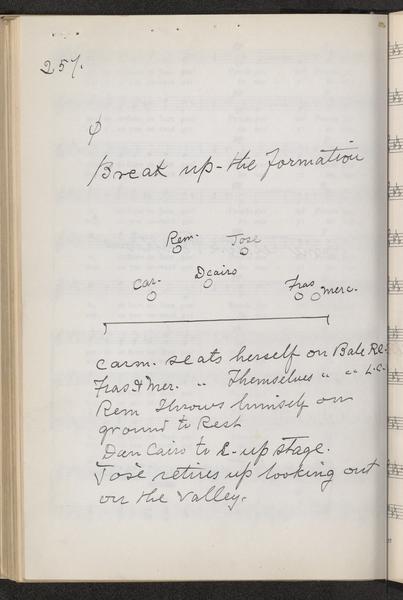 257.
φ
Break up the formation
Rem. Jose
Car. Dcairo Fras Merc.
Carm. seats herself on Bale R.C.
Fras & Mer. " Themselves " " L.C.
Rem Throws himself on
ground to Rest
Dan Cairo to L - up stage.
José retires up looking out
on the valley.